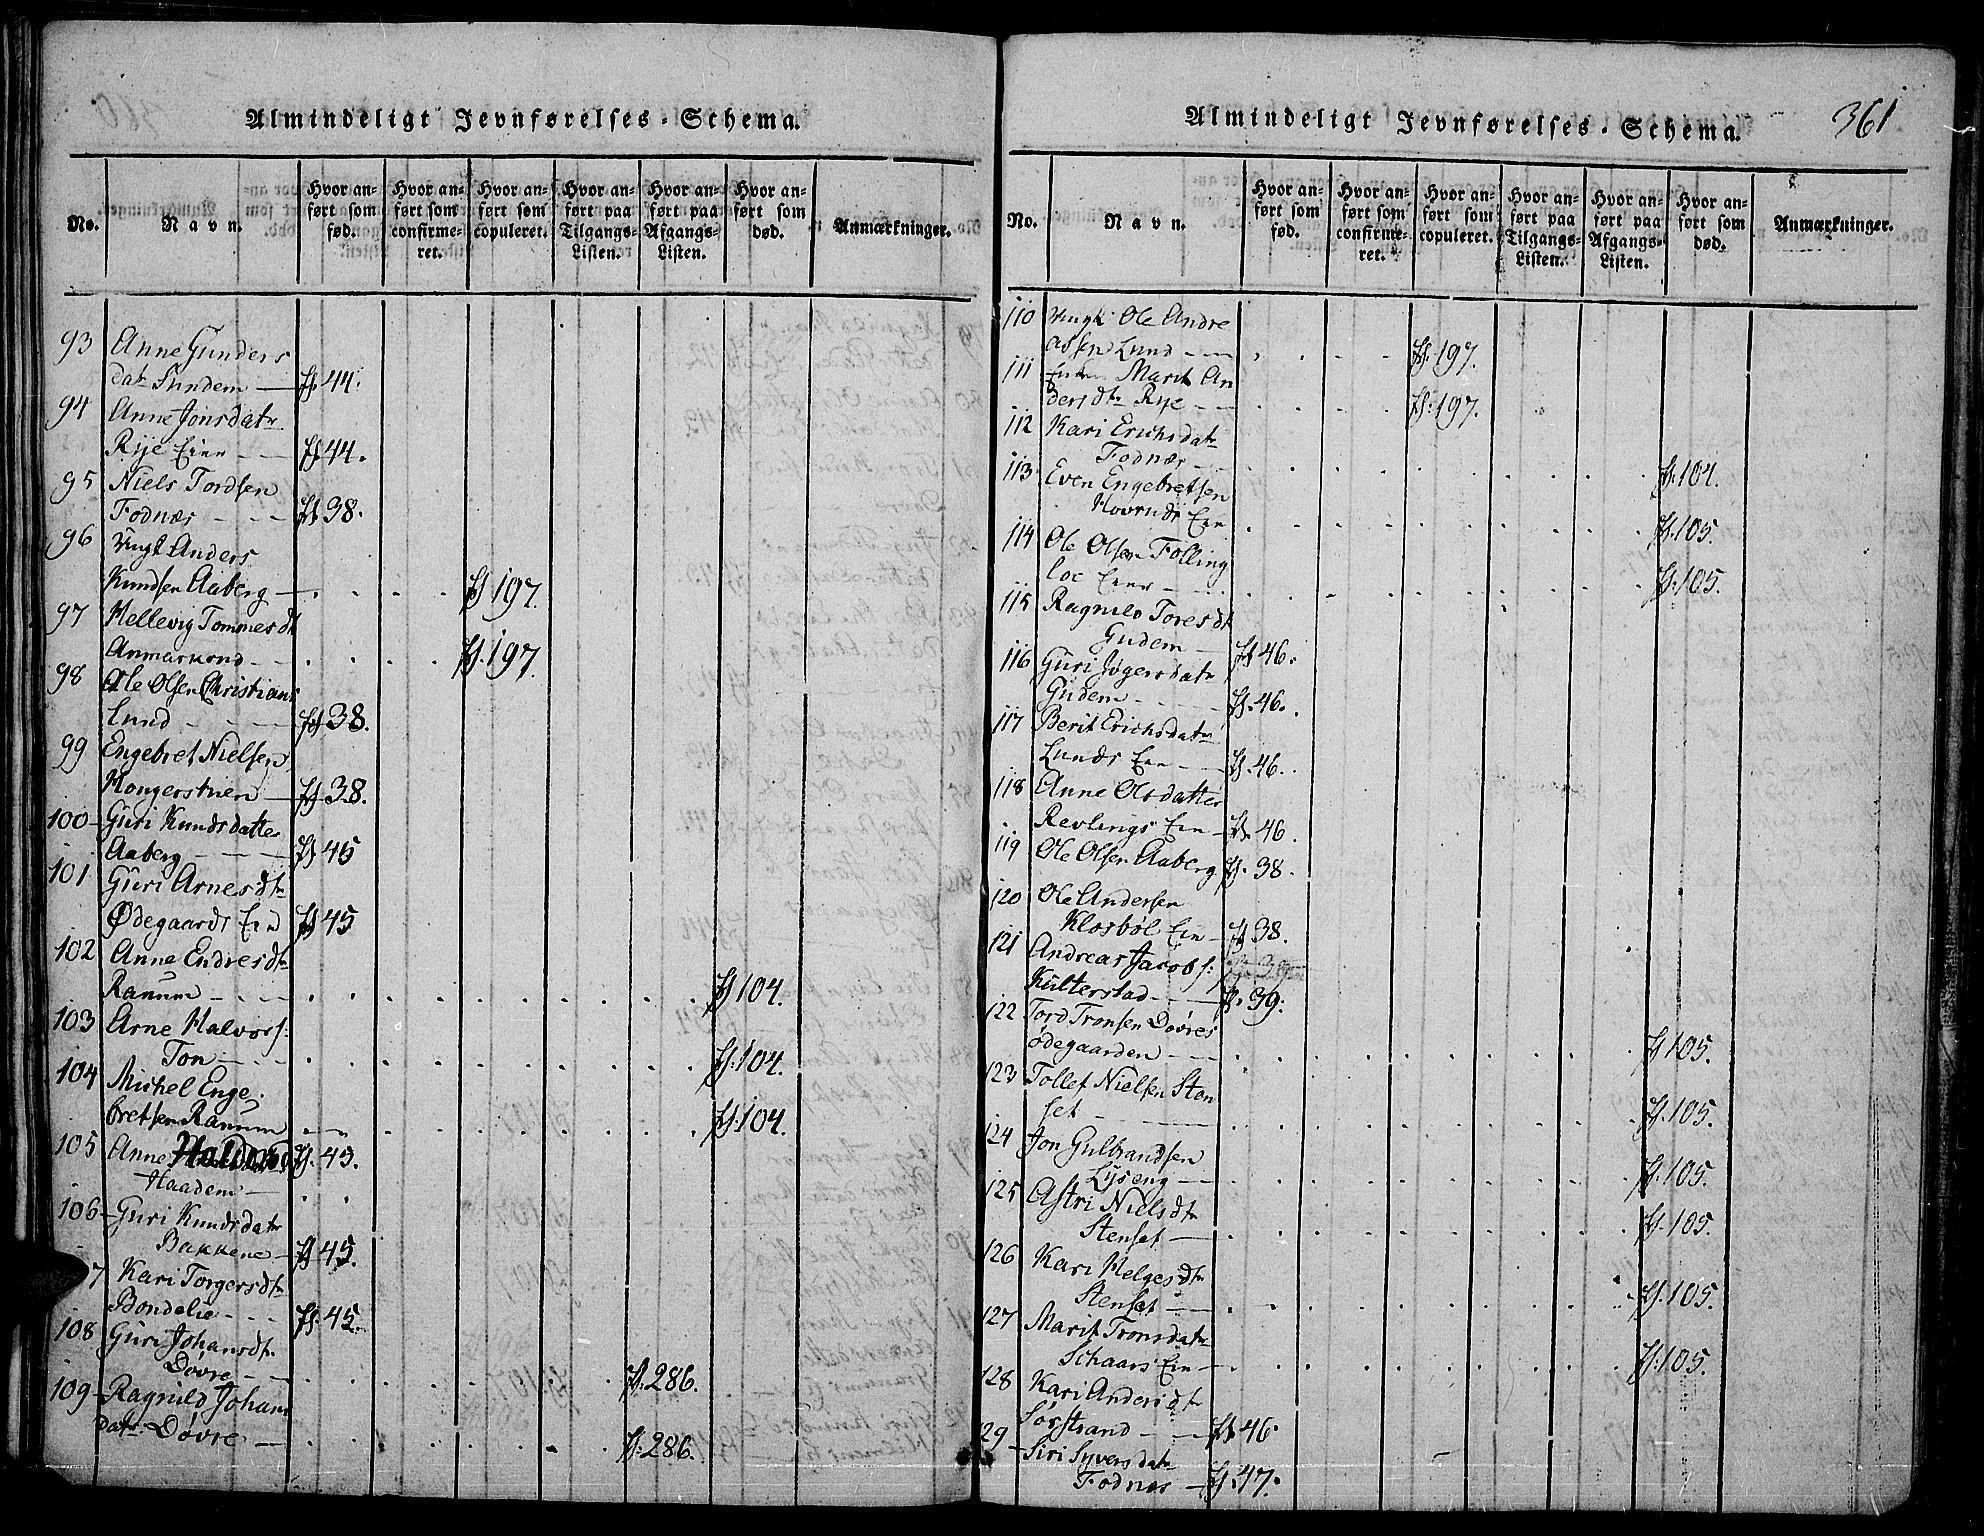 Almindeligt Jevnførelses-Schema.
No. Navn. Hvor anført som fød. Hvor anført som confirmeret. Hvor anført som copuleret. Hvor anført paa Tilgangs-Listen. Hvor anført paa Afgangs-Listen. Hvor anført som død. Anmærkninger.
93 Anne Gunders
datr Sundem — 44.
94 Anne Jonsdatr
Rye Eier — 44.
95 Niels Tordsen
Fodnæs — 38.
96 Ungk Anders
Knudsen Aaberg — 197.
97 Hellevig Tommesdt
197.
98 Ole Olsen Christians
Lund — 38.
99 Engebret Nielsen
Kongerstuen — 38.
100 Guri Knudsdatter
Aaberg — 45
101 Guri Arnesdtr
Ødegaards Eie 45
102 Anne Endresdtr
Ranum — 104.
103 Arne Halvors:
Ton — 104.
104 Michel Enge
bretsen Ranum — 104.
105 Anne
Haadem — 45.
106 Guri Knudsdatr
Bakkene — 45.
7 Kari Torgersdtr
Bondelie — 45.
108 Guri Johansdtr
Dovre — 286.
109 Ragnild Johans
datr Dovre — 286.
Almindeligt Jevnførelses-Schema.
361
No. Navn. Hvor anført som fød. Hvor anført som confirmeret. Hvor anført som copuleret. Hvor anført paa Tilgangs-Listen. Hvor anført paa Afgangs-Listen. Hvor anført som død. Anmærkninger.
110 Ungk Ole Andre
assen Lund — 197.
111 Marit An
dersdtr Rye — 197.
112 Kari Erichsdatr
Fodnæs — 104.
113 Even Engebretsen
105.
114 Ole Olsen Folling
loe Eier — 105.
115 Ragnild Toresdt
Gudem — 46.
116 Guri Jøgersdatr
Gudem — 46.
117 Berit Erichsdatr
Lunds Eie — 46.
118 Anne Olsdatter
Revlings Eie — 46.
119 Ole Olsen Aaberg 38.
120 Ole Andersen
Klosbøl Eie — 38.
121 Andreas Jacobs:
Kulterstad — 39.
122 Tord Tronsen Dovres
ødegaarden — 105.
123 Tollef Nielsen Sten
set — 105.
124 Jon Gulbrandsen
Lyseng — 105.
125 Astri Nielsdtr
Stenset — 105.
126 Kari Helgesdtr
Stenset — 105.
127 Marit Tronsdatr
Schaars Eie — 105.
128 Kari Andersdtr
Sørstrand — 46.
29 Siri Syversdatr
Fodnæs — 47.